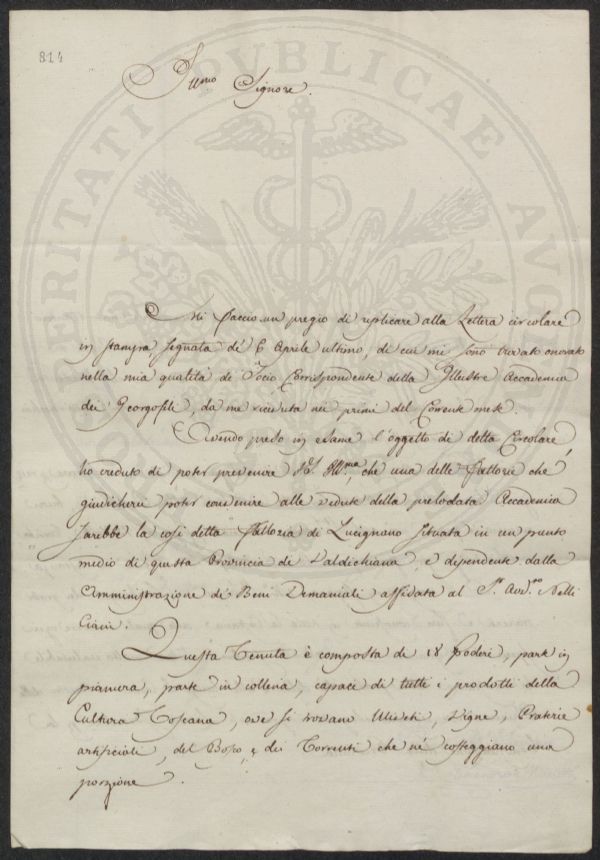 814
Illmo Signore.
Mi faccio un pregio di replicare alla Lettera circolare
in stampa, segnata de' 6 Aprile ultimo, di cui mi sono trovato onorato
nella mia qualità di Socio Corrispondente della Illustre Accademia
dei Georgofili, da me ricevuta nei primi del Corrente mese.
Avendo preso in esame l'oggetto di detta Circolare,
ho creduto di poter prevenire V.S. Illma che una delle Fattorie che
giudicherei poter convenire alle vedute della prelodata Accademia
sarebbe la così detta Fattoria di Lucignano situata in un punto
medio di questa Provincia di Valdichiana, e dipendente dalla
Amministrazione di Beni Demaniali affidata al Sr. Avvo. Nelli
Ciani.
Questa Tenuta è composta di 18 Poderi, parte in
pianura, parte in collina, capaci di tutti i prodotti della
Cultura Toscana, ove si trovano Uliveti, Vigne, Praterie
artificiali, del Bosco, e dei Torrenti che ne costeggiano una
porzione.
PERITATI PUBLICAE AUG